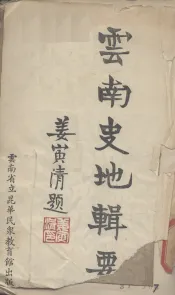 雲南史地輯要
姜寅清題
雲南省立昆華民衆教育館出版